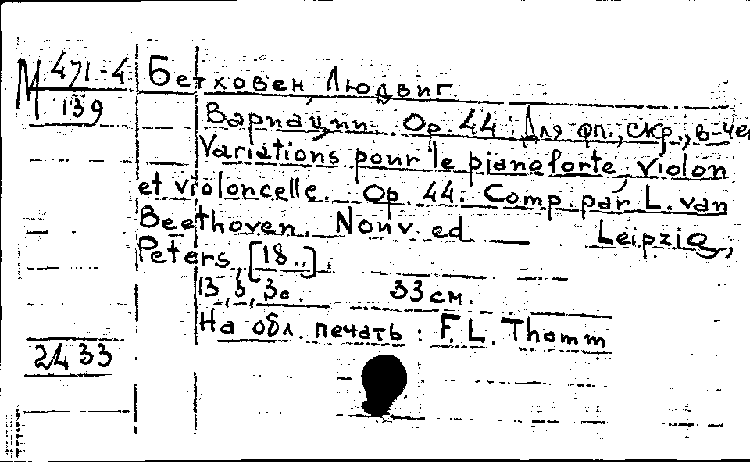 М 471-4 Бетховен, Людвиг
139
Вариации. Op. 44. Для фп., скр., в-чел
Variations pour le pianoforte, violon
et violoncelle. Op 44. Comp. par L. van
Beethoven. Nouv. ed — Leipzig,
Peters, [18..].
13, 3, 3 с. 33 см.
На обл. печать: F. L. Thomm
2433